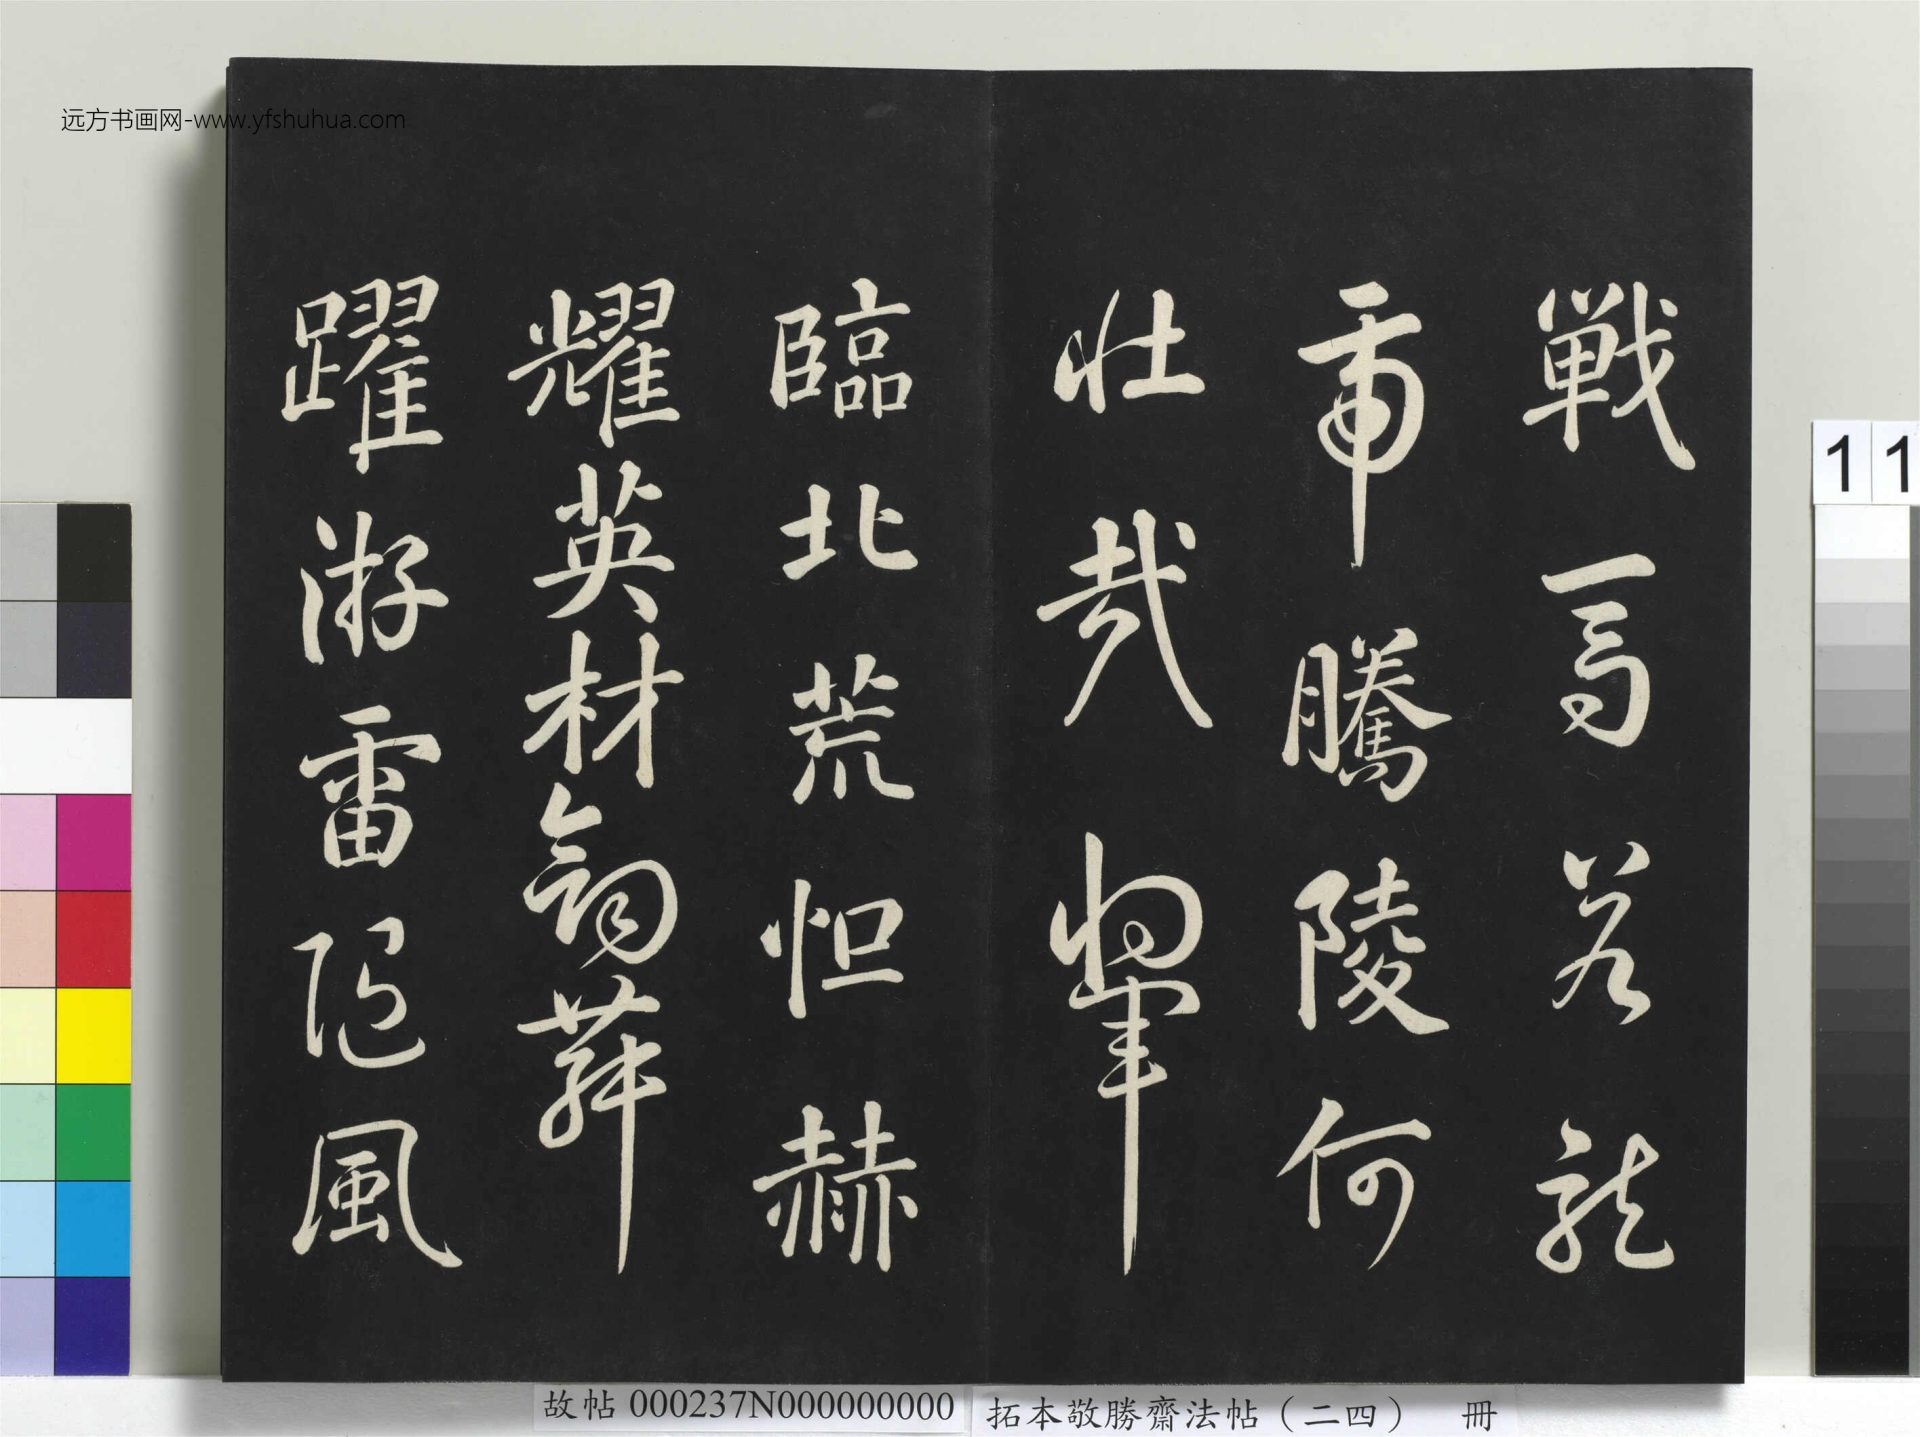 远方书画网-www.yfshuhua.com
戰馬若龍
虎騰陵何
壯哉將軍
臨北荒恒赫
耀英材劍舞
躍游雷隨風
11
故帖 000237N000000000
拓本敬勝齋法帖（二四） 冊